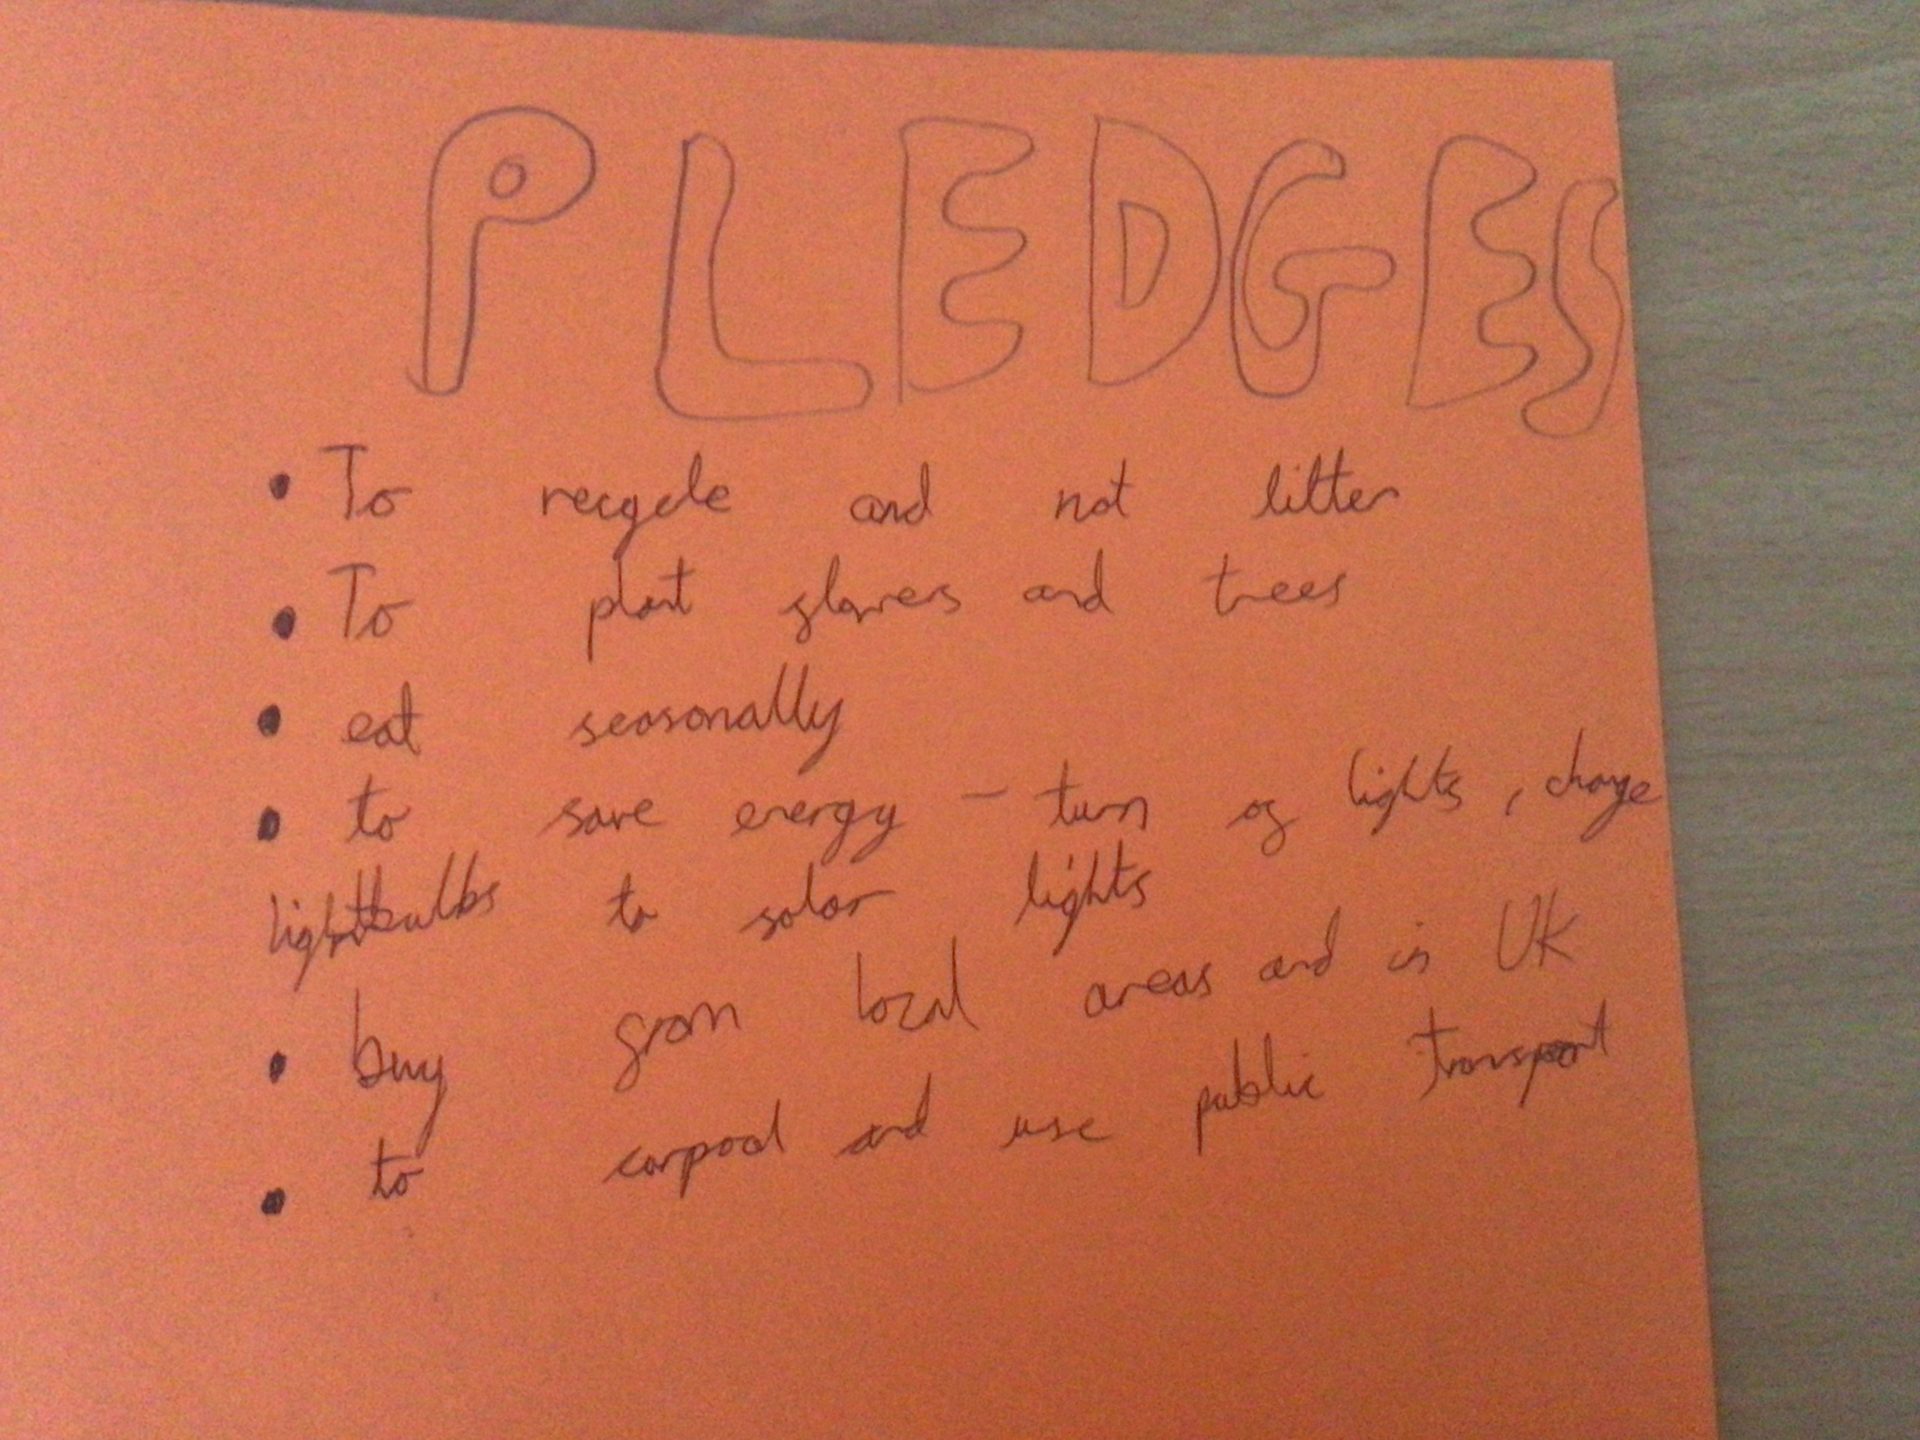 PLEDGES
• To recycle and not litter
• To plant flowers and trees
• eat seasonally
• to save energy - turn of lights, change
lightbulbs to solar lights
• buy from local areas and in UK
• to carpool and use public transport